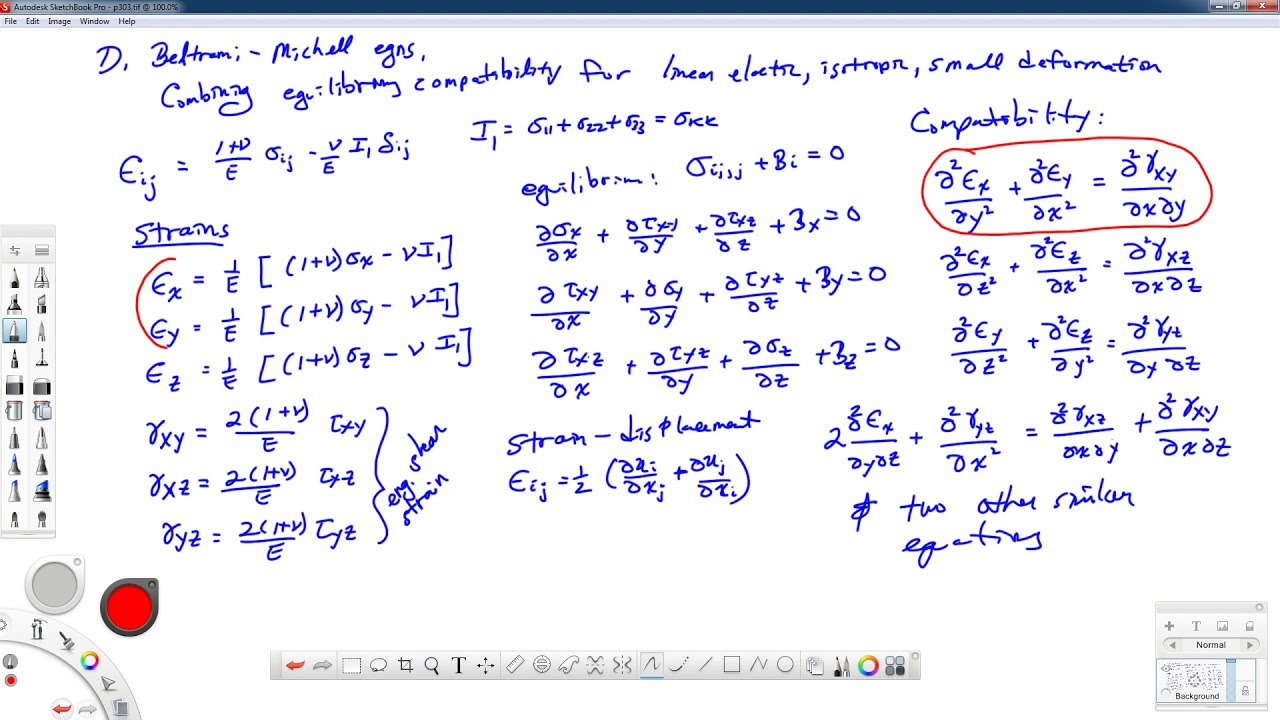 Autodesk SketchBook Pro - p303.tif @ 100.0%
File Edit Image Window Help
D. Beltrami - Michell eqns,
Combining equilibrium & compatibility for linear elastic, isotropic, small deformation
ϵij = (1+ν)/E σij - ν/E I₁ δij
I₁ = σ11 + σ22 + σ33 = σKK
equilibrium: σij,j + Bi = 0
Strains
ϵx = 1/E [(1+ν)σx - νI₁]
ϵy = 1/E [(1+ν)σy - νI₁]
ϵz = 1/E [(1+ν)σz - ν I₁]
γxy = 2(1+ν)/E τxy
γxz = 2(1+ν)/E τxz
γyz = 2(1+ν)/E τyz
eng. shear
strain
∂σx/∂x + ∂τxy/∂y + ∂τxz/∂z + Bx = 0
∂τxy/∂x + ∂σy/∂y + ∂τyz/∂z + By = 0
∂τxz/∂x + ∂τyz/∂y + ∂σz/∂z + Bz = 0
Strain - displacement
ϵij = 1/2 (∂ui/∂xj + ∂uj/∂xi)
Compatibility:
∂²ϵx/∂y² + ∂²ϵy/∂x² = ∂²γxy/∂x∂y
∂²ϵx/∂z² + ∂²ϵz/∂x² = ∂²γxz/∂x∂z
∂²ϵy/∂z² + ∂²ϵz/∂y² = ∂²γyz/∂y∂z
2 ∂²ϵx/∂y∂z + ∂²γyz/∂x² = ∂²γxz/∂x∂y + ∂²γxy/∂x∂z
& two other similar
equations
T
T
Normal
Background